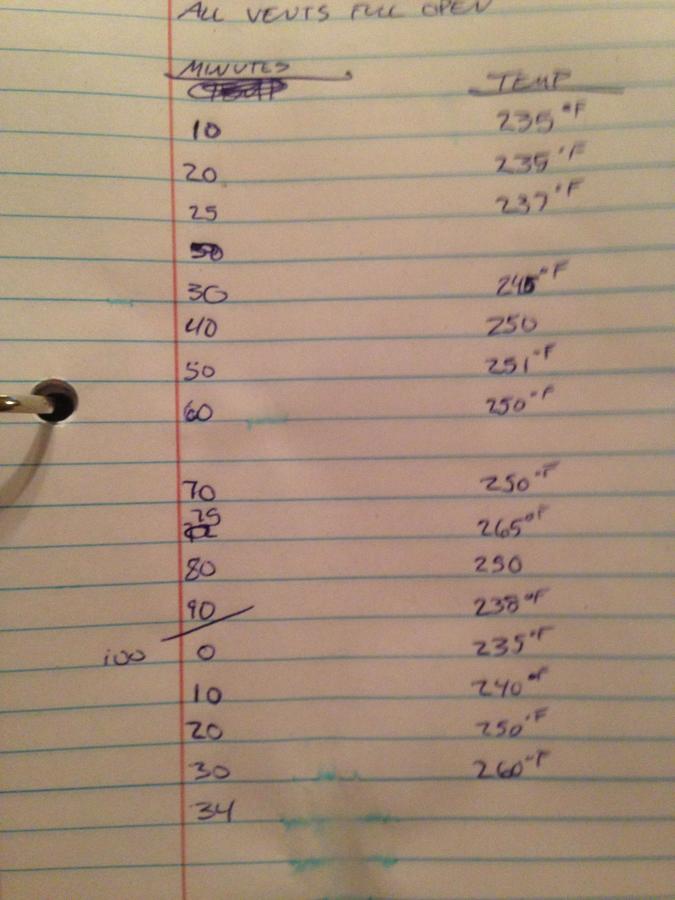 ALL VENTS FULL OPEN
MINUTES TEMP
10 235°F
20 235°F
25 237°F
30 245°F
40 250
50 251°F
60 250°F
70 250°F
75 265°F
80 250
90 238°F
100 0 235°F
10 240°F
20 250°F
30 260°F
34